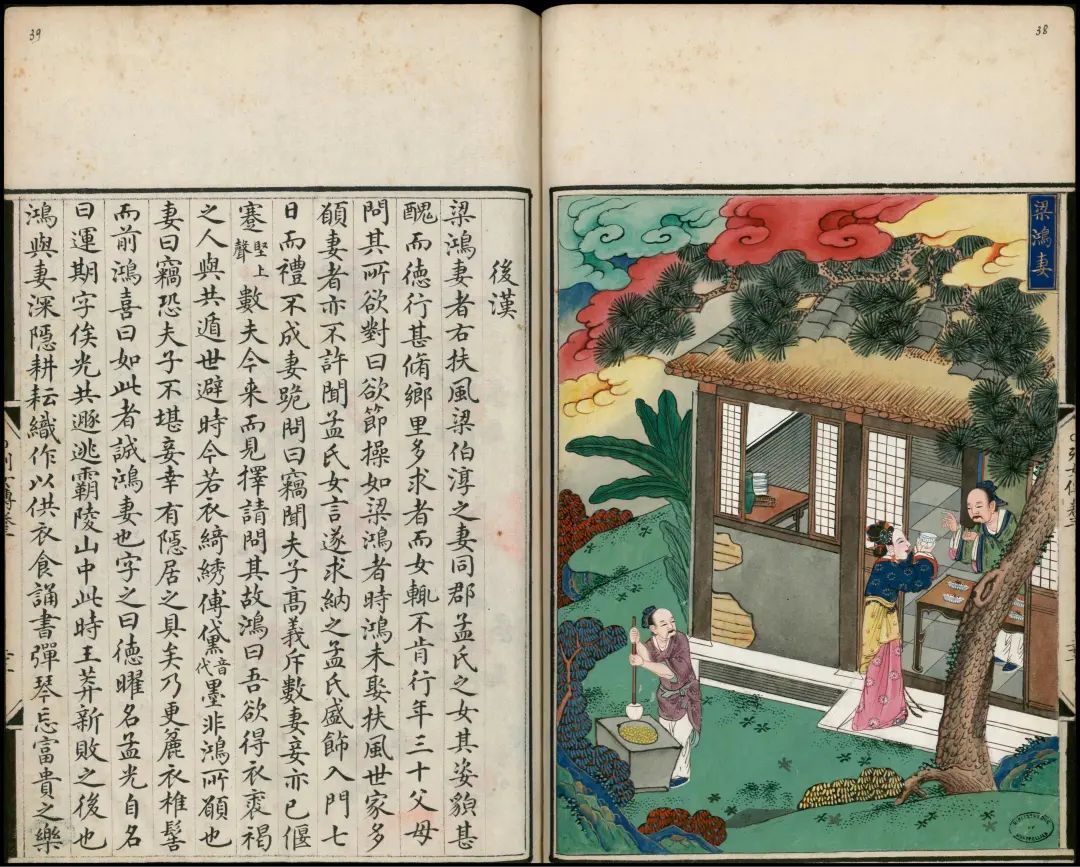 38
梁鴻妻
39
後漢
梁鴻妻者右扶風梁伯淳之妻同郡孟氏之女其姿貌甚
醜而徳行甚脩鄉里多求者而女輒不肯行年三十父母
問其所欲對曰欲節操如梁鴻者時鴻未娶扶風世家多
願妻者亦不許聞孟氏女言遂求納之孟氏盛飾入門七
日而禮不成妻跪問曰竊聞夫子高義斥數妻妾亦已偃
蹇堅上聲數夫今来而見擇請問其故鴻曰吾欲得衣裘褐
之人與共遁世避時今若衣綺綉傅黛音代墨非鴻所願也
妻曰竊恐夫子不堪妾幸有隱居之具矣乃更麄衣椎髻
而前鴻喜曰如此者誠鴻妻也字之曰徳曜名孟光自名
曰運期字俟光共遯逃霸陵山中此時王莽新敗之後也
鴻與妻深隱耕耘織作以供衣食誦書彈琴忘富貴之樂